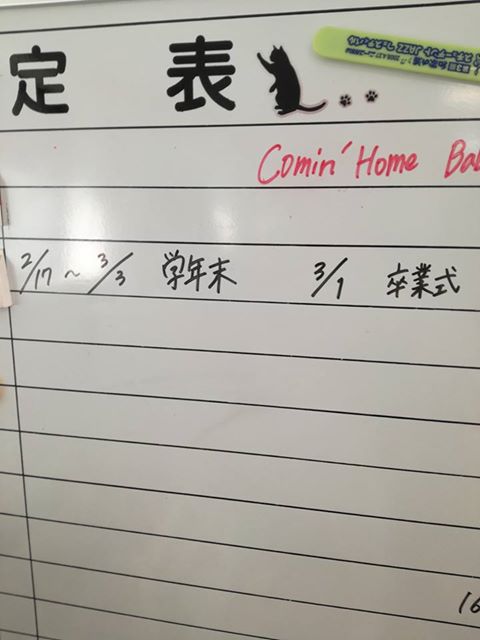 定 表
Comin' Home Ba
2/17 ~ 3/3 学年末 3/1 卒業式
16